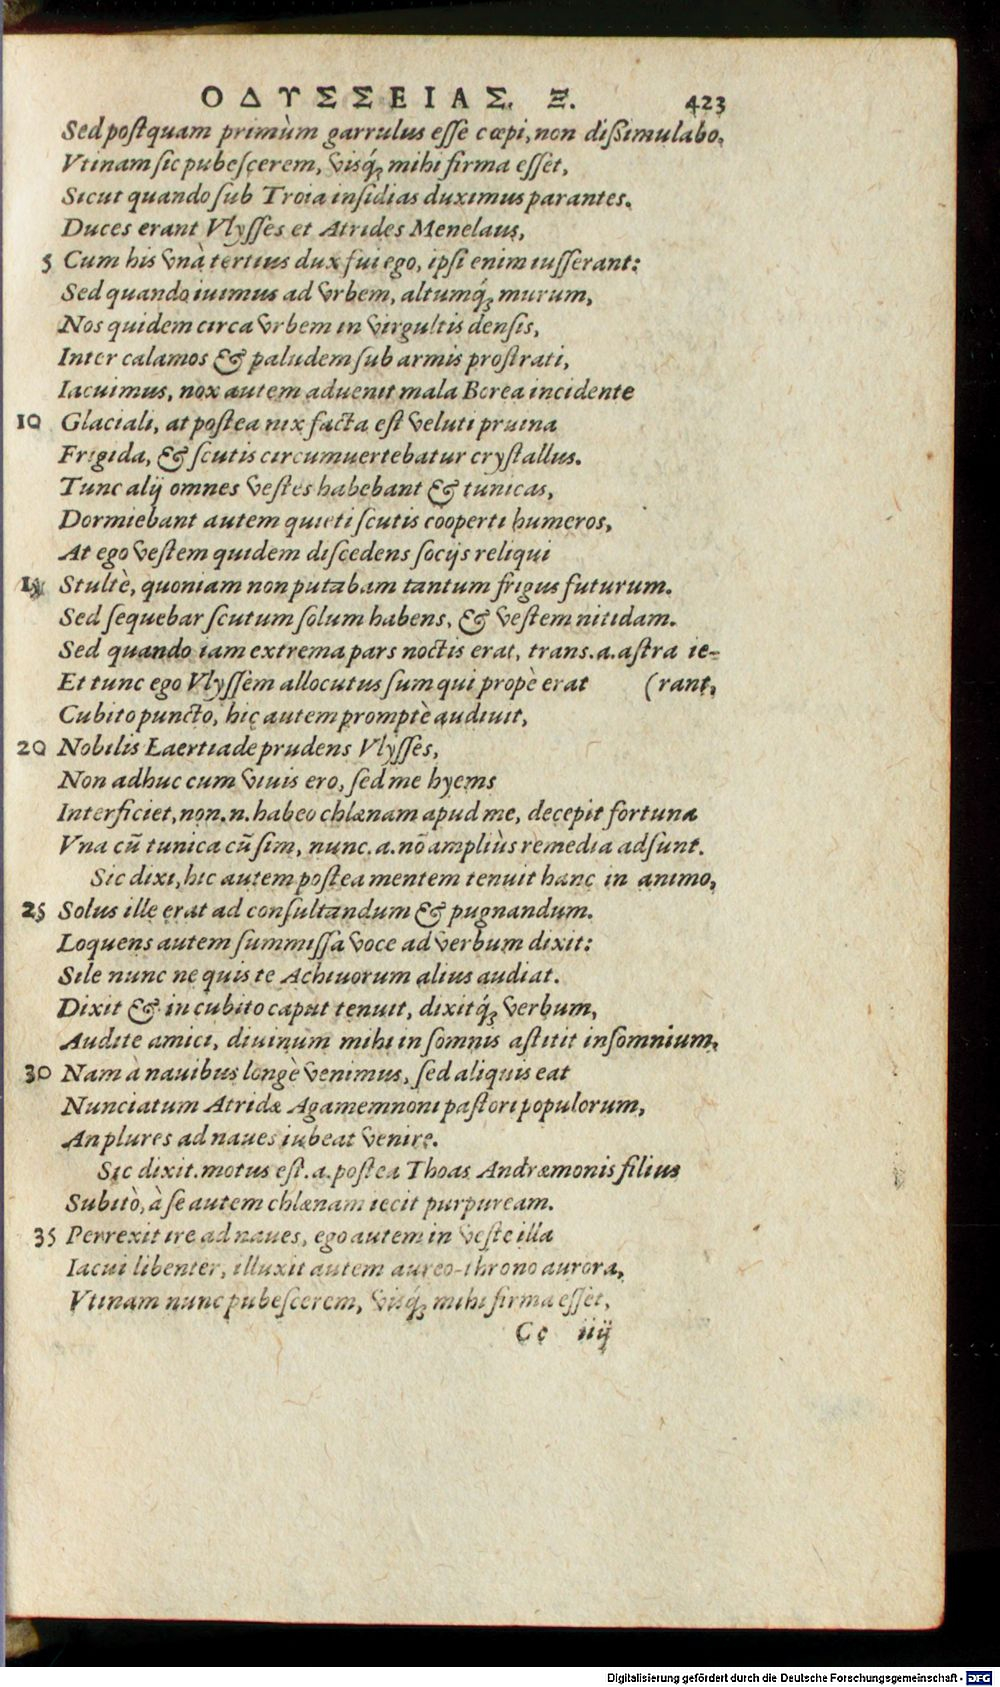 ΟΔΥΣΣΕΙΑΣ. Ξ. 423
Sed postquam primùm garrulus esse cœpi, non dissimulabo,
Vtinam sic pubescerem, visq́; mihi firma esset,
Sicut quando sub Troia insidias duximus parantes.
Duces erant Vlysses et Atrides Menelaus,
5 Cum his vnà tertius dux fui ego, ipsi enim iusserant:
Sed quando iuimus ad vrbem, altumq́; murum,
Nos quidem circa vrbem in virgultis densis,
Inter calamos & paludem sub armis prostrati,
Iacuimus, nox autem aduenit mala Borea incidente
10 Glaciali, at postea nix facta est veluti pruina
Frigida, & scutis circumuertebatur crystallus.
Tunc alij omnes vestes habebant & tunicas,
Dormiebant autem quieti scutis cooperti humeros,
At ego vestem quidem discedens socijs reliqui
15 Stultè, quoniam non putabam tantum frigus futurum.
Sed sequebar scutum solum habens, & vestem nitidam.
Sed quando iam extrema pars noctis erat, trans.a.astra ie-
Et tunc ego Vlyssem allocutus sum qui propè erat (rant,
Cubito puncto, hic autem promptè audiuit,
20 Nobilis Laertiade prudens Vlysses,
Non adhuc cum viuis ero, sed me hyems
Interficiet, non.n.habeo chlænam apud me, decepit fortuna
Vna cũ tunica cũ sim, nunc.a.nõ ampliùs remedia adsunt.
Sic dixi, hic autem postea mentem tenuit hanc in animo,
25 Solus ille erat ad consultandum & pugnandum.
Loquens autem summissa voce ad verbum dixit:
Sile nunc ne quis te Achiuorum alius audiat.
Dixit & in cubito caput tenuit, dixitq́; verbum,
Audite amici, diuinum mihi in somnis astitit insomnium,
30 Nam à nauibus longè venimus, sed aliquis eat
Nunciatum Atridæ Agamemnoni pastori populorum,
An plures ad naues iubeat venire.
Sic dixit. motus est.a.postea Thoas Andræmonis filius
Subitò, à se autem chlænam iecit purpuream.
35 Perrexit ire ad naues, ego autem in veste illa
Iacui libenter, illuxit autem aureo-throno aurora,
Vtinam nunc pubescerem, visq́; mihi firma esset,
Cc iiij
Digitalisierung gefördert durch die Deutsche Forschungsgemeinschaft - DFG